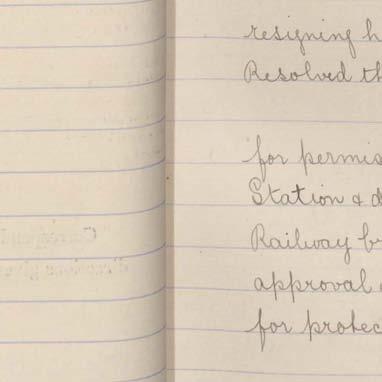 resigning h
Resolved th
for permis
Station & d
Railway b
approval
for protec